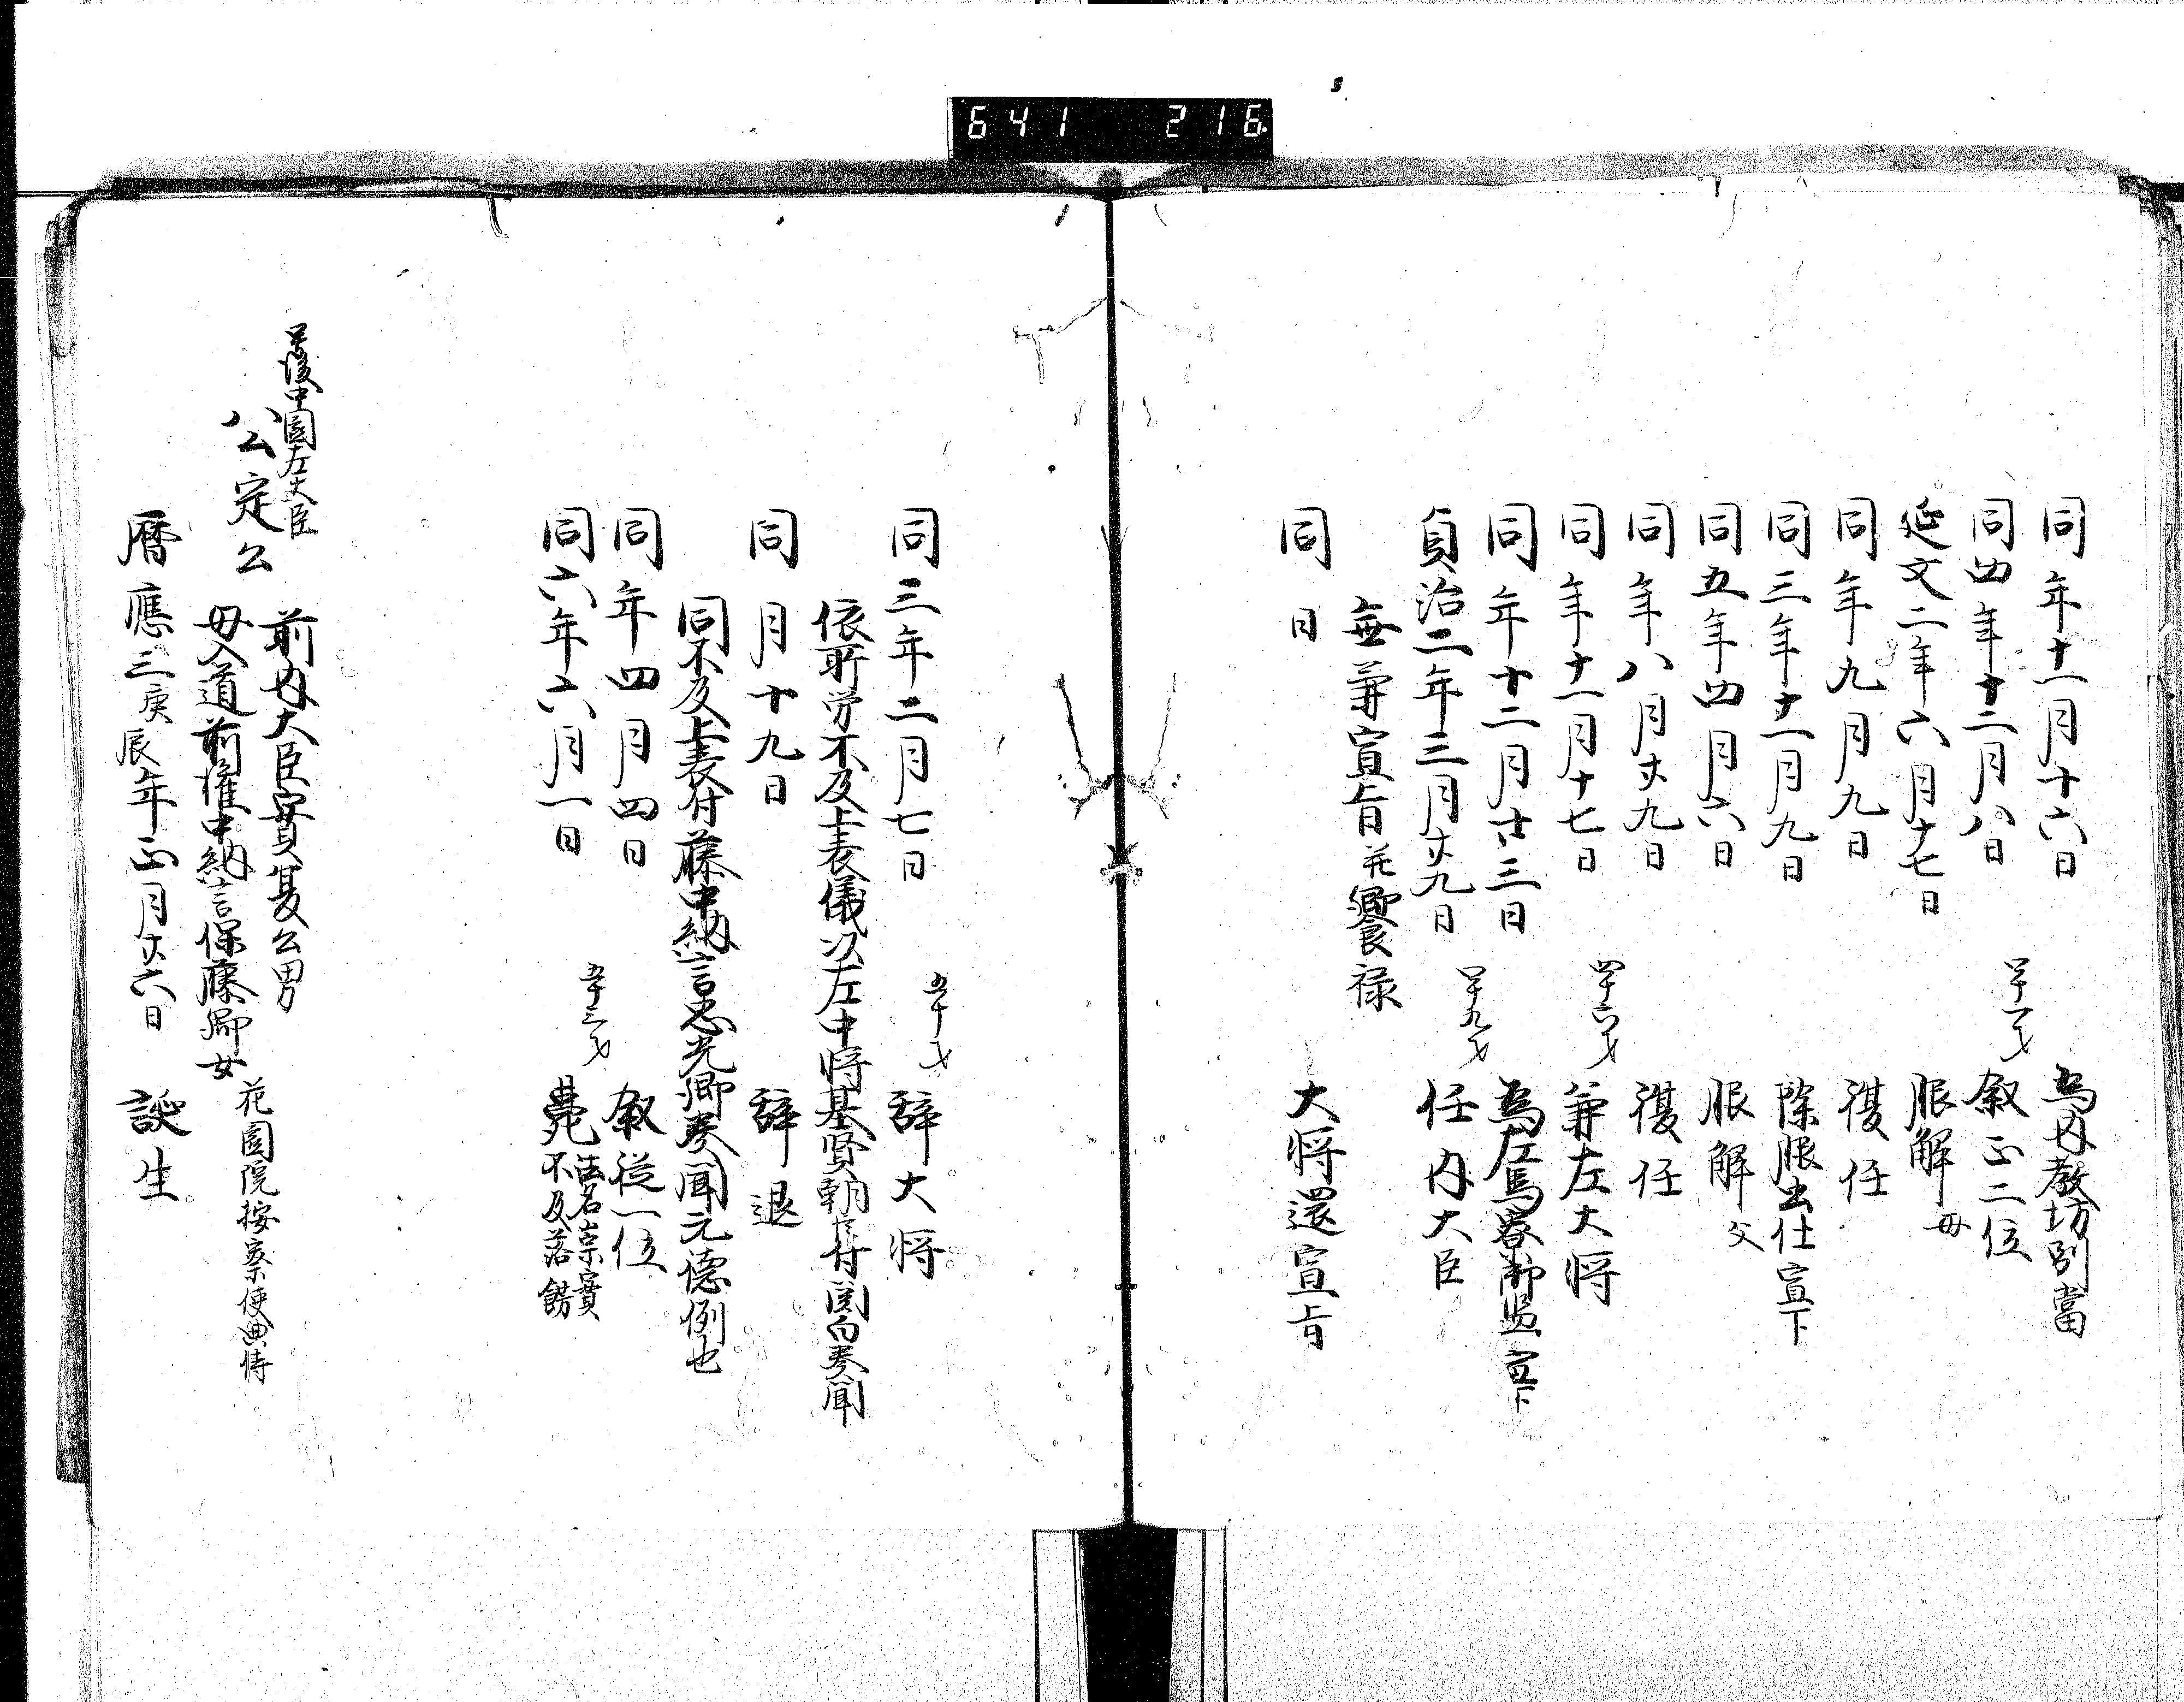 641 216
同年十一月十六日 為内教坊別當
同四年十二月八日 四十一才 叙正二位
延文二年六月十七日 服解母
同年九月九日 復任
同三年十一月九日 除服出仕宣下
同五年四月六日 服解父
同年八月廿九日 復任
同年十一月十七日 四十六才 兼左大将
同年十二月廿三日 為左馬寮御監宣下
貞治二年三月廿九日 四十九才 任内大臣
無兼宣旨并饗禄
同日 大将還宣旨
同三年二月七日 五十才 辞大将
依所労不及上表儀以左中将基賢朝臣付関白奏聞
同月十九日 辞退
同不及上表付藤中納言忠光卿奏聞元德例也
同年四月四日 叙従一位
同六年六月一日 五十三才 薨 法名宗實 不及落餝
号後中園左大臣
公定公
前内大臣實夏公男
母入道前権中納言保藤卿女 花園院按察使典侍
曆應三庚辰年正月廿六日 誕生